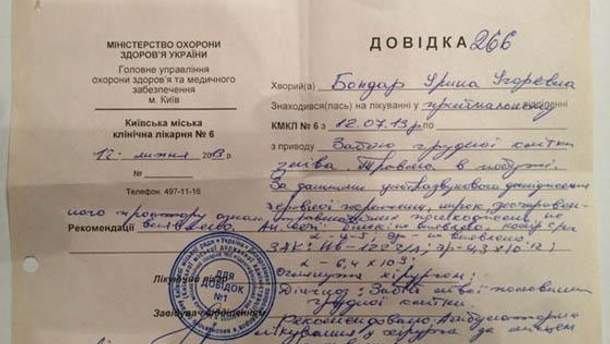 МІНІСТЕРСТВО ОХОРОНИ
ЗДОРОВ'Я УКРАЇНИ
Головне управління
охорони здоров'я та медичного
забезпечення
м. Київ
Київська міська
клінічна лікарня № 6
12 липня 2013р.
№
Телефон: 497-11-16
ДОВІДКА 266
Хворий(а) Бондар Ірина Ігоревна
Знаходився(лась) на лікуванні у відділенні
КМКЛ № 6 з 12.07.13р по
з приводу Забою грудної клітки
зліва. Травма в побуті.
За даними ультразвукового дослідження
черевної порожнини, нирок,
ного простору ознак травматичних пошкоджень не
Рекомендації виявлено. Ан. сечі: білок не виявлено,
ЗАК: Нв-122 г/л; Эр-4,3 х 10 12;
L - 6,4 х 10 9;
Лікуючий лікар Оглянута хірургом:
Діагноз: Забій лівої половини
грудної клітки.
Завідувач відділенням Рекомендовано: Амбулаторне
лікування у хірурга за місцем
ДЛЯ
ДОВІДОК
№1